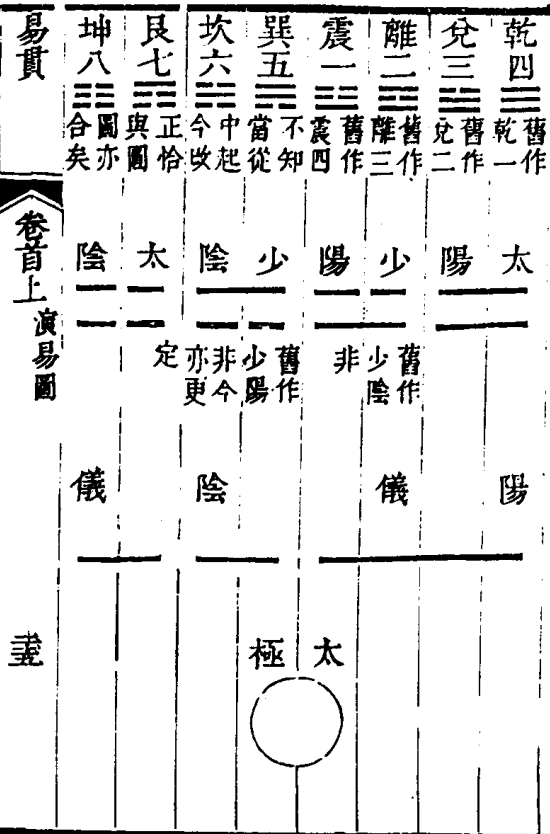 乾四 舊作乾一
兌三 舊作兌二
離二 舊作離三
震一 舊作震四
巽五 不知當從
坎六 中起今改
艮七 正恰與圖
坤八 圖亦合矣
太陽
少陽
少陰
太陰
舊作少陰非
舊作少陽非今亦更定
陽儀
陰儀
太極
易貫
卷首上 演易圖